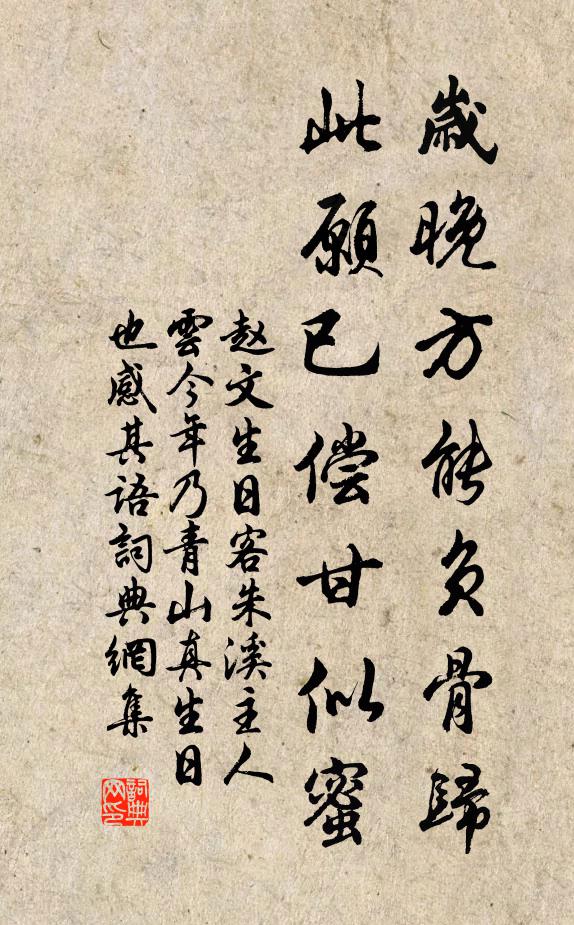 歲晚方能负骨歸
此願已偿甘似蜜
赵文生日客朱溪主人
雲今年乃青山真生日
也感其语詞典網集
詞典网印